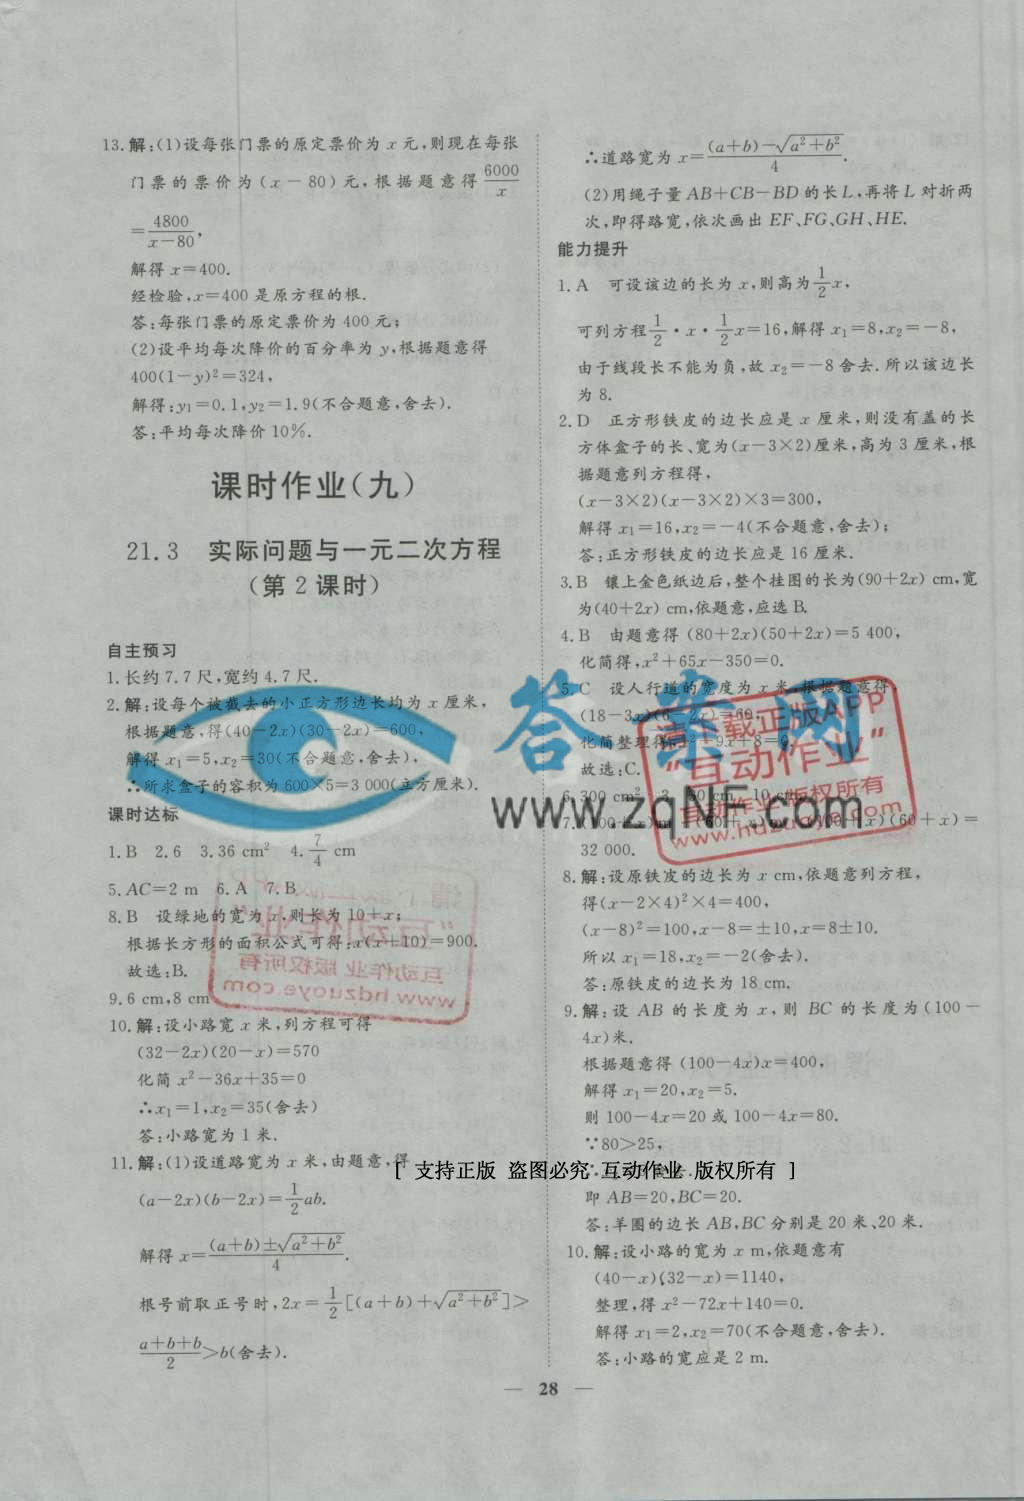 13.解:(1)设每张门票的原定票价为 x 元,则现在每张
门票的票价为(x-80)元,根据题意得 6000/x
=4800/(x-80),
解得 x=400.
经检验,x=400 是原方程的根.
答:每张门票的原定票价为 400 元;
(2)设平均每次降价的百分率为 y,根据题意得
400(1-y)²=324,
解得:y₁=0.1,y₂=1.9(不合题意,舍去).
答:平均每次降价 10%.
课时作业(九)
21.3 实际问题与一元二次方程
(第 2 课时)
自主预习
1.长约 7.7 尺,宽约 4.7 尺.
2.解:设每个被截去的小正方形边长均为 x 厘米,
根据题意,得(40-2x)(30-2x)=600,
解得 x₁=5,x₂=30(不合题意,舍去).
∴所求盒子的容积为 600×5=3 000(立方厘米).
课时达标
1.B 2.6 3.36 cm² 4.7/4 cm
5.AC=2 m 6.A 7.B
8.B 设绿地的宽为 x,则长为 10+x;
根据长方形的面积公式可得:x(x+10)=900.
故选:B.
9.6 cm,8 cm
10.解:设小路宽 x 米,列方程可得
(32-2x)(20-x)=570
化简 x²-36x+35=0
∴x₁=1,x₂=35(舍去)
答:小路宽为 1 米.
11.解:(1)设道路宽为 x 米,由题意,得
(a-2x)(b-2x)=1/2ab.
解得 x=((a+b)±√(a²+b²))/4.
根号前取正号时,2x=1/2[(a+b)+√(a²+b²)]>
(a+b+b)/2>b(舍去).
∴道路宽为 x=((a+b)-√(a²+b²))/4.
(2)用绳子量 AB+CB-BD 的长 L,再将 L 对折两
次,即得路宽,依次画出 EF、FG、GH、HE.
能力提升
1.A 可设该边的长为 x,则高为 1/2x,
可列方程 1/2·x·1/2x=16,解得 x₁=8,x₂=-8,
由于线段长不能为负,故 x₂=-8 舍去.所以该边长
为 8.
2.D 正方形铁皮的边长应是 x 厘米,则没有盖的长
方体盒子的长、宽为(x-3×2)厘米,高为 3 厘米,根
据题意列方程得,
(x-3×2)(x-3×2)×3=300,
解得 x₁=16,x₂=-4(不合题意,舍去);
答:正方形铁皮的边长应是 16 厘米.
3.B 镶上金色纸边后,整个挂图的长为(90+2x) cm,宽
为(40+2x) cm,依题意,应选 B.
4.B 由题意得 (80+2x)(50+2x)=5 400,
化简得,x²+65x-350=0.
5.C 设人行道的宽度为 x 米,根据题意得,
(18-3x)(6-2x)=60,
化简整理得, +9x+8=0.
故选:C.
6.300 cm² 3 50 cm 10 cm
7.(100+x)m (60+x)m (100+x)(60+x)=
32 000.
8.解:设原铁皮的边长为 x cm,依题意列方程,
得(x-2×4)²×4=400,
(x-8)²=100,x-8=±10,x=8±10.
所以 x₁=18,x₂=-2(舍去).
答:原铁皮的边长为 18 cm.
9.解:设 AB 的长度为 x,则 BC 的长度为(100-
4x)米.
根据题意得 (100-4x)x=400,
解得 x₁=20,x₂=5.
则 100-4x=20 或 100-4x=80.
∵80>25,
∴
即 AB=20,BC=20.
答:羊圈的边长 AB,BC 分别是 20 米、20 米.
10.解:设小路的宽为 x m,依题意有
(40-x)(32-x)=1140,
整理,得 x²-72x+140=0.
解得 x₁=2,x₂=70(不合题意,舍去).
答:小路的宽应是 2 m.
28
答案网
www.zqNF.com
请下载正版APP
“互动作业”
互动作业 版权所有
www.hdzuoye.com
“互动作业”
互动作业 版权所有
www.hdzuoye.com
[ 支持正版 盗图必究 互动作业 版权所有 ]